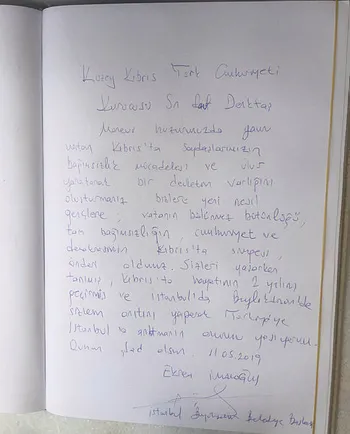 Kuzey Kıbrıs Türk Cumhuriyeti
Kurucusu Sn Denktaş
Manevi huzurunuzda
Kıbrıs'ta soydaşlarımızın
bağımsızlık mücadelesi ve ulus
yaratarak bir devletin varlığını
oluşturmanız bizlere yeni nesil
gençlere, vatanın bölünmez bütünlüğü,
tam bağımsızlığın, cumhuriyet ve
demokrasinin Kıbrıs'ta simgesi,
önderi oldunuz. Sizleri yaşarken
tanımış, Kıbrıs'ta hayatının 2 yılını
geçirmiş ve İstanbul'da Beylikdüzü'nde
sizlerin anıtını yaparak Türkiye'ye
İstanbul'a anlatmanın onurunu yaşıyorum.
Ruhun şad olsun. 11.05.2019
Ekrem İmamoğlu
İstanbul Büyükşehir Belediye Başkanı